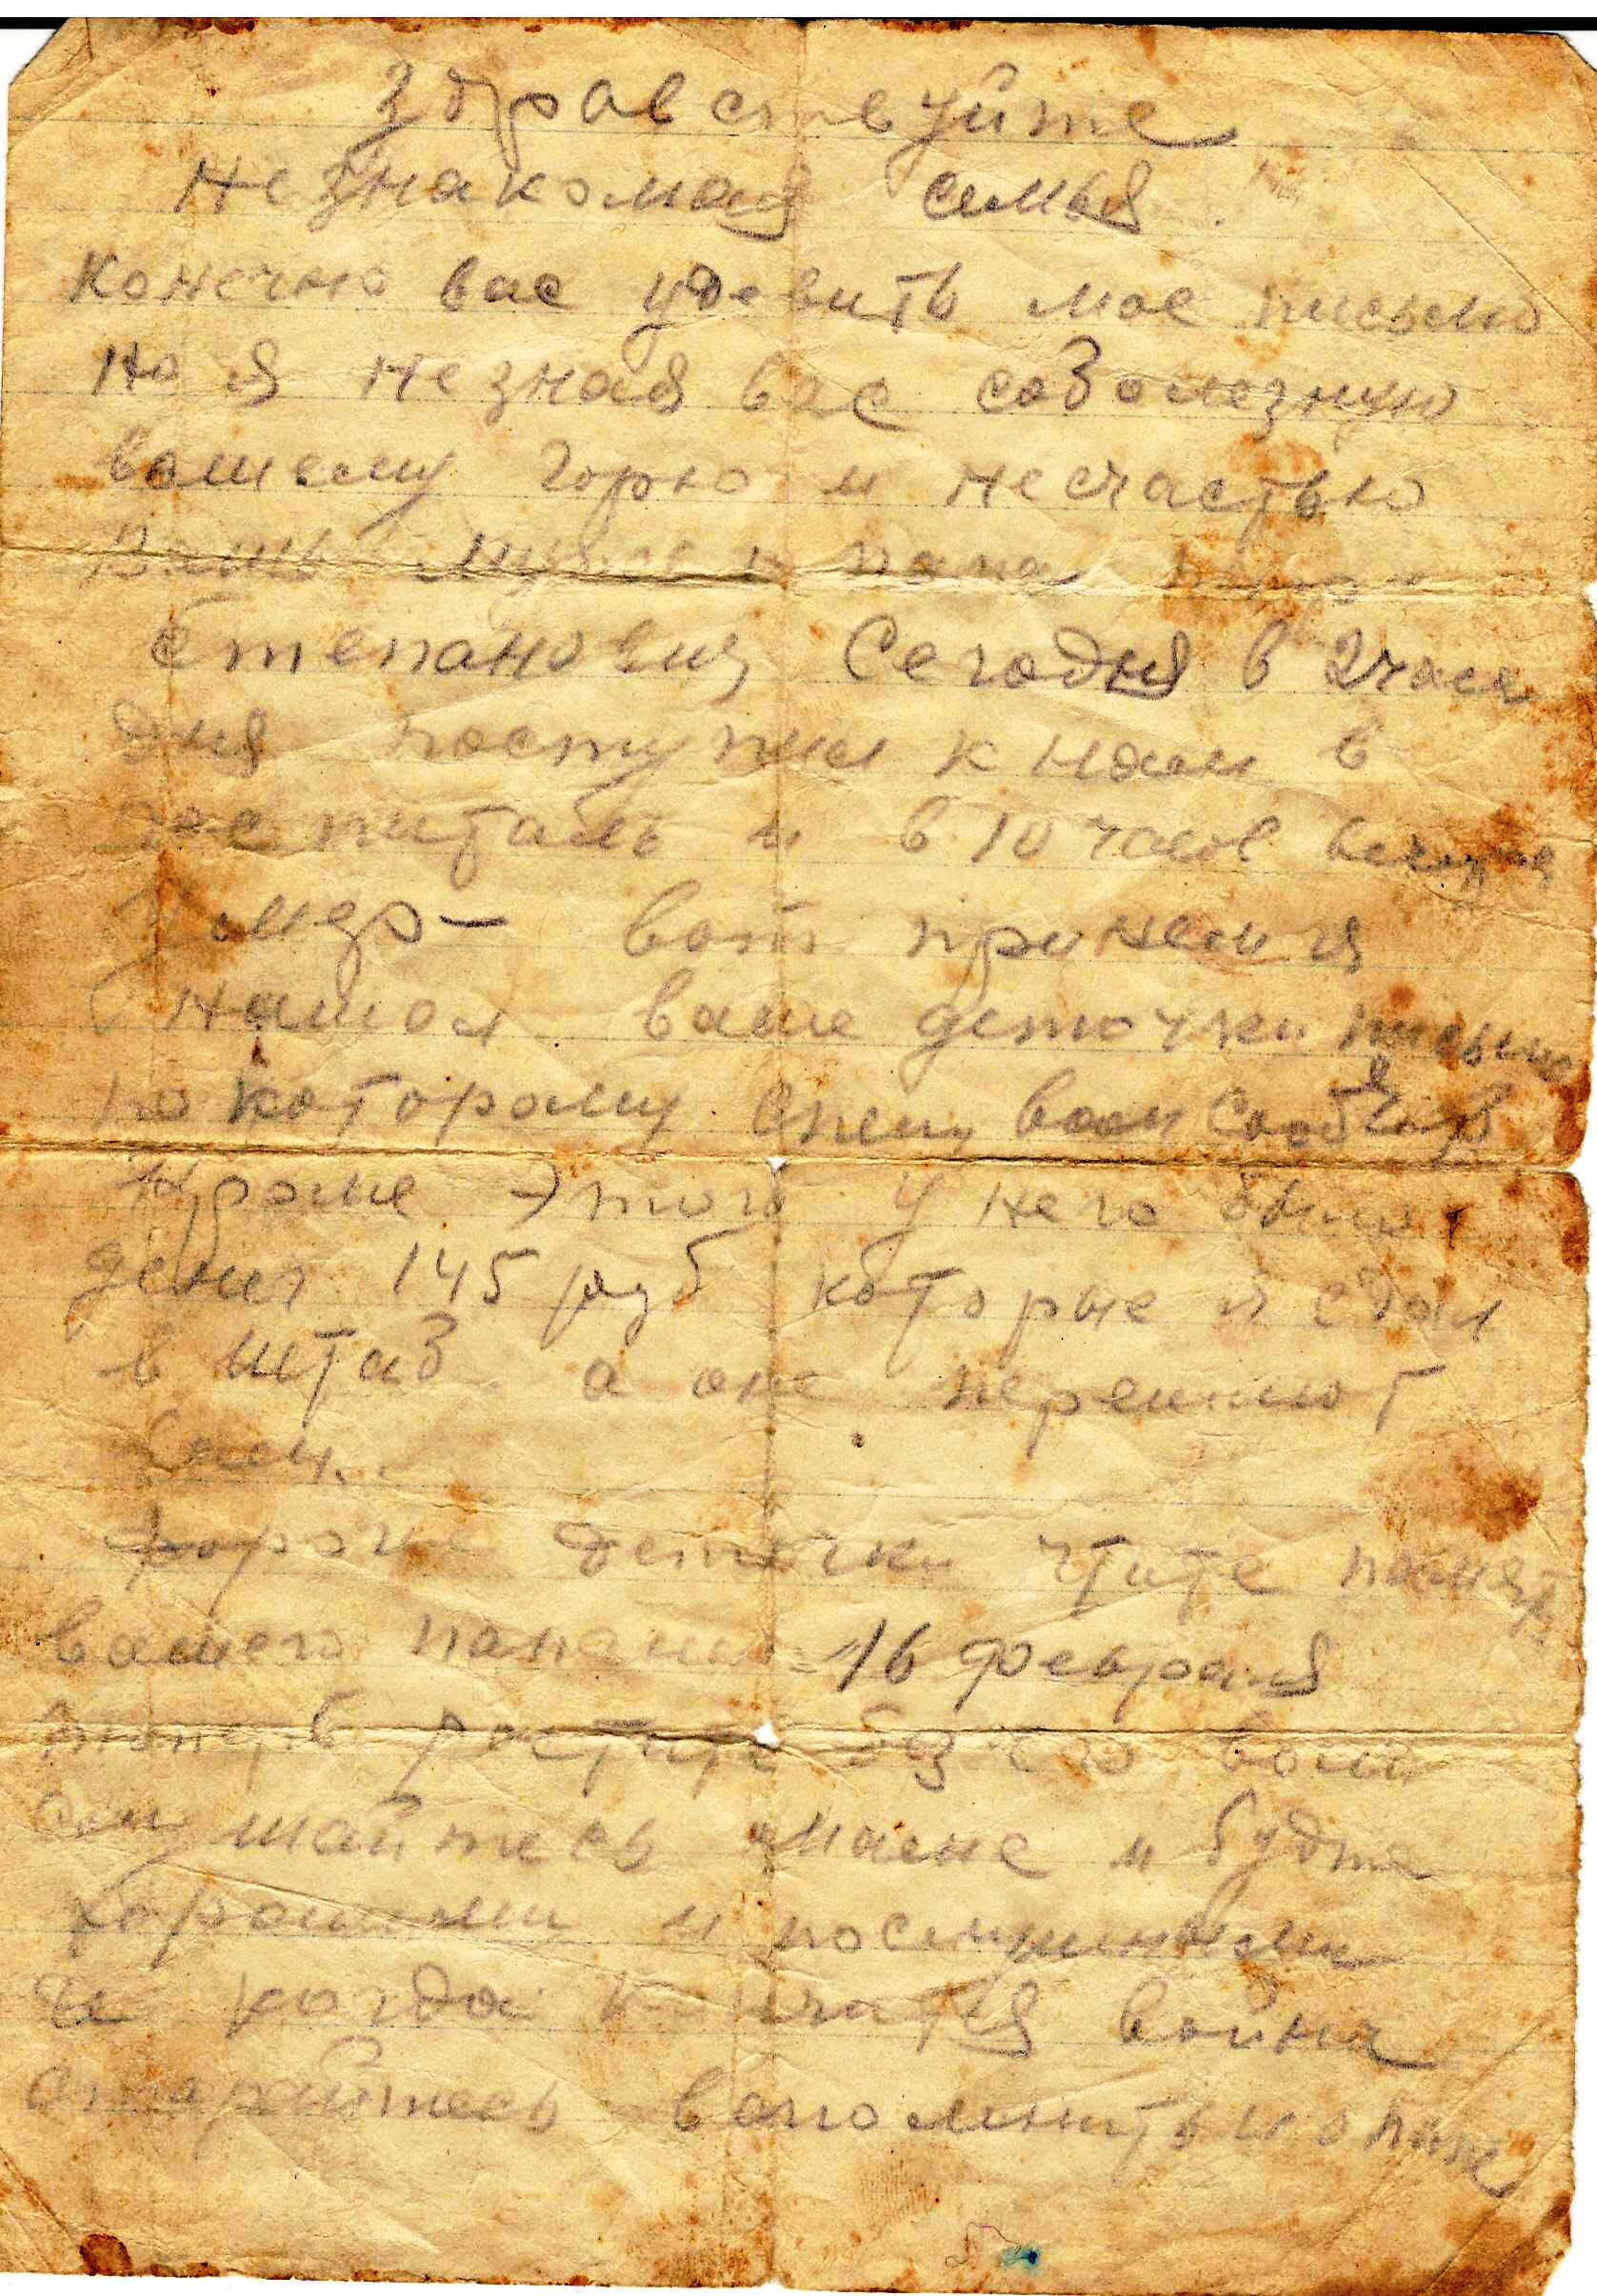 Здравствуйте
Незнакомая семья.
Конечно вас удевить мое письмо
Но я не зная вас соболезную
вашему горю и несчастью
Вашь муж и папа
Степанович Сегодня в 2 часа
дня поступил к нам в
госпиталь и в 10 часов вечера
Умер — вот при нем я
Нашол ваше деточки письмо
по которому спешу вам сообщ
Кроме этого у него было
денег 145 руб которые я сдал
в штаб а оне перешлют
вам.
Дороже деточки чтите память
вашего папаши 16 февраля
теперь растите без его вам
слушайтесь маме и будте
хорошими и послушными
и когда кончатся война
старайтесь вспомнить и о папе